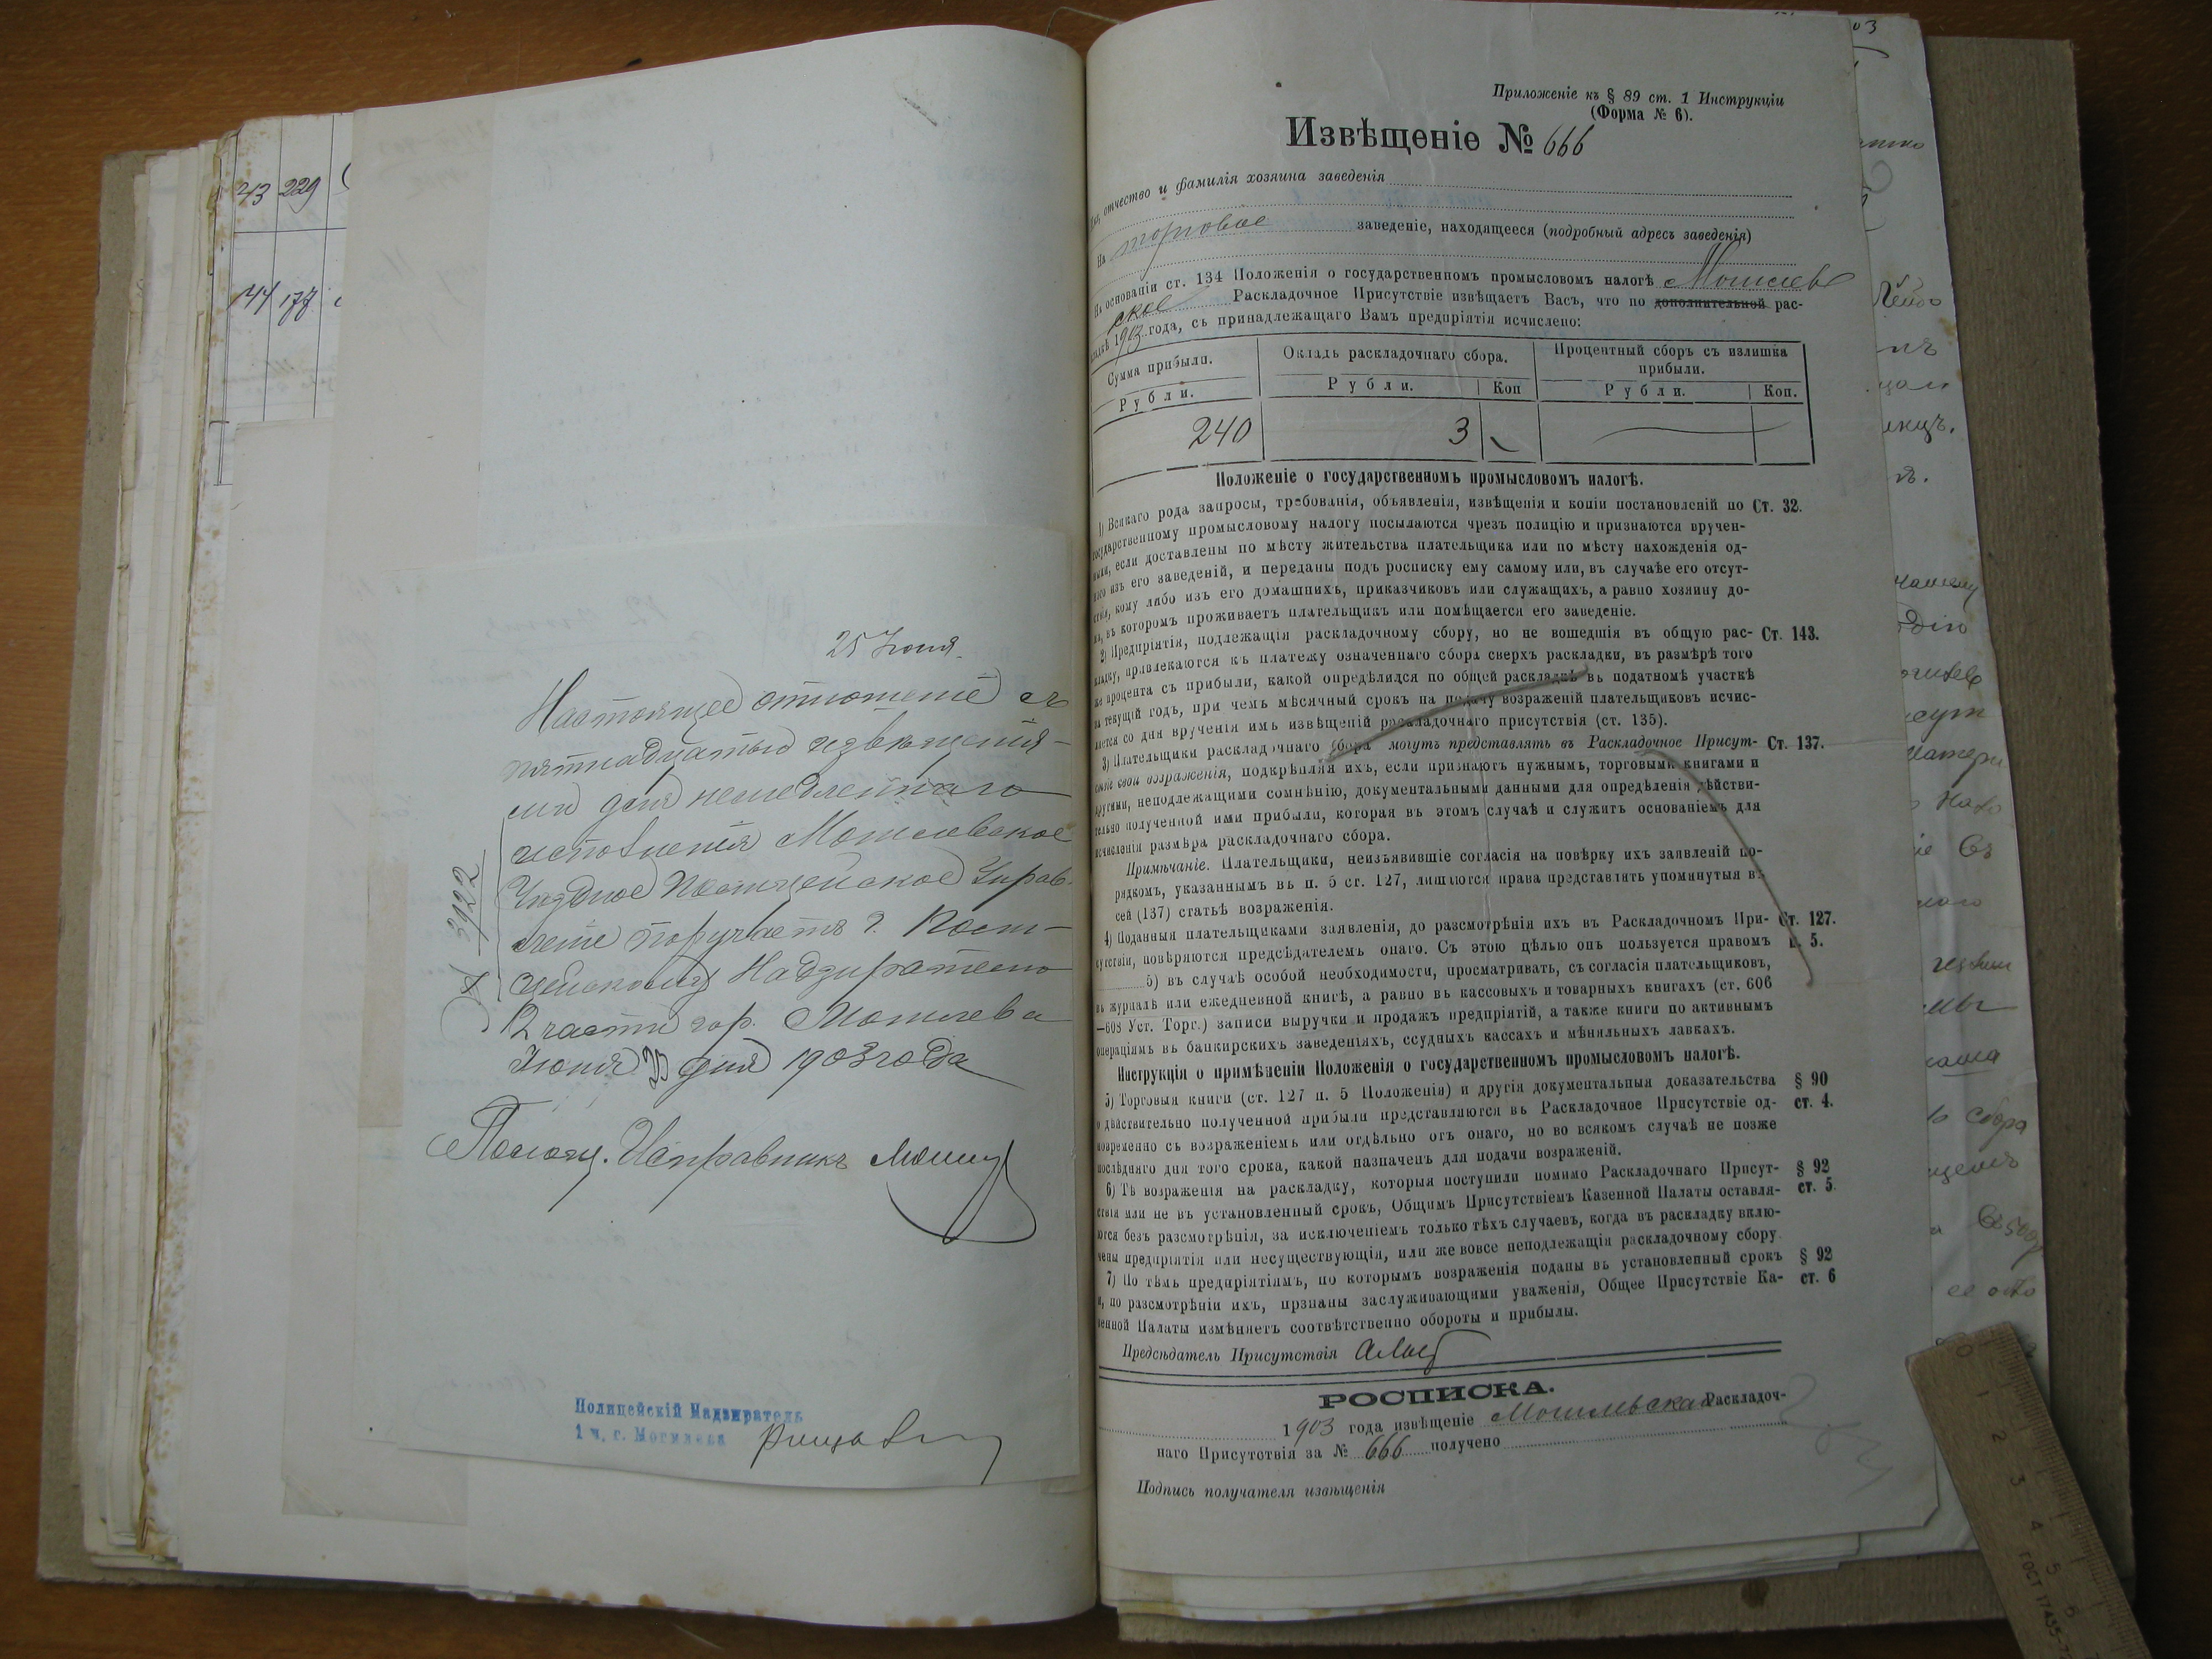 43 229
44 177
25 Іюня
Настоящее отношеніе съ
пятнадцатью извѣщенія-
ми для немедленнаго
исполненія Могилевское
Уѣздное Полицейское Управ-
леніе поручаетъ г. Поли-
цейскому Надзирателю
части гор. Могилева
Іюня дня 1903 года
№ 3922
Помощ. Исправника
Полицейскій Надзиратель
1 ч. г. Могилева
Приложеніе къ § 89 ст. 1 Инструкціи
(Форма № 6).
Извѣщеніе № 666
отчество и фамилія хозяина заведенія
На торговое заведеніе, находящееся (подробный адресъ заведенія)
На основаніи ст. 134 Положенія о государственномъ промысловомъ налогѣ Могилев
ское Раскладочное Присутствіе извѣщаетъ Васъ, что по дополнительной рас-
кладкѣ 1903 года, съ принадлежащаго Вамъ предпріятія исчислено:
Сумма прибыли. Окладъ раскладочнаго сбора. Процентный сборъ съ излишка
прибыли.
Рубли. Рубли. Коп Рубли. Коп.
240 3
Положеніе о государственномъ промысловомъ налогѣ.
1) Всякаго рода запросы, требованія, объявленія, извѣщенія и копіи постановленій по Ст. 32.
государственному промысловому налогу посылаются чрезъ полицію и признаются вручен-
ными, если доставлены по мѣсту жительства плательщика или по мѣсту нахожденія од-
ного изъ его заведеній, и переданы подъ росписку ему самому или, въ случаѣе его отсут-
ствія, кому либо изъ его домашнихъ, приказчиковъ или служащихъ, а равно хозяину до-
ма, въ которомъ проживаетъ плательщикъ или помѣщается его заведеніе.
2) Предпріятія, подлежащія раскладочному сбору, но не вошедшія въ общую рас- Ст. 143.
кладку, привлекаются къ платежу означеннаго сбора сверхъ раскладки, въ размѣрѣ того
же процента съ прибыли, какой опредѣлился по общей раскладкѣ въ податномъ участкѣ
на текущій годъ, при чемъ мѣсячный срокъ на подачу возраженій плательщиковъ исчис-
ляется со дня врученія имъ извѣщеній раскладочнаго присутствія (ст. 135).
3) Плательщики раскладочнаго сбора могутъ представлять въ Раскладочное Присут- Ст. 137.
ствіе свои возраженія, подкрѣпляя ихъ, если признаютъ нужнымъ, торговыми книгами и
другими, неподлежащими сомнѣнію, документальными данными для опредѣленія дѣйстви-
тельно полученной ими прибыли, которая въ этомъ случаѣ и служитъ основаніемъ для
исчисленія размѣра раскладочнаго сбора.
Примѣчаніе. Плательщики, неизъявившіе согласія на повѣрку ихъ заявленій по-
рядкомъ, указаннымъ въ п. 5 ст. 127, лишаются права представлять упомянутыя въ
сей (137) статьѣ возраженія.
4) Поданныя плательщиками заявленія, до разсмотрѣнія ихъ въ Раскладочномъ При- Ст. 127.
сутствіи, повѣряются предсѣдателемъ онаго. Съ этою цѣлью онъ пользуется правомъ п. 5.
5) въ случаѣ особой необходимости, просматривать, съ согласія плательщиковъ,
въ журналѣ или ежедневной книгѣ, а равно въ кассовыхъ и товарныхъ книгахъ (ст. 606
—608 Уст. Торг.) записи выручки и продажъ предпріятій, а также книги по активнымъ
операціямъ въ банкирскихъ заведеніяхъ, ссудныхъ кассахъ и мѣняльныхъ лавкахъ.
Инструкція о примѣненіи Положенія о государственномъ промысловомъ налогѣ.
5) Торговыя книги (ст. 127 п. 5 Положенія) и другія документальныя доказательства § 90
о дѣйствительно полученной прибыли представляются въ Раскладочное Присутствіе од- ст. 4.
новременно съ возраженіемъ или отдѣльно отъ онаго, но во всякомъ случаѣ не позже
послѣдняго дня того срока, какой назначенъ для подачи возраженій.
6) Тѣ возраженія на раскладку, которыя поступили помимо Раскладочнаго Присут- § 92
ствія или не въ установленный срокъ, Общимъ Присутствіемъ Казенной Палаты оставля- ст. 5.
ются безъ разсмотрѣнія, за исключеніемъ только тѣхъ случаевъ, когда въ раскладку вклю-
чены предпріятія или несуществующія, или же вовсе неподлежащія раскладочному сбору.
7) По тѣмъ предпріятіямъ, по которымъ возраженія поданы въ установленный срокъ § 92
и, по разсмотрѣніи ихъ, признаны заслуживающими уваженія, Общее Присутствіе Ка- ст. 6
зенной Палаты измѣняетъ соотвѣтственно обороты и прибылы.
Предсѣдатель Присутствія
РОСПИСКА.
1903 года извѣщеніе Могилевскаго Раскладоч-
наго Присутствія за № 666 получено
Подпись получателя извѣщенія
0 1 2 3 4 5 6
ГОСТ 17435-7